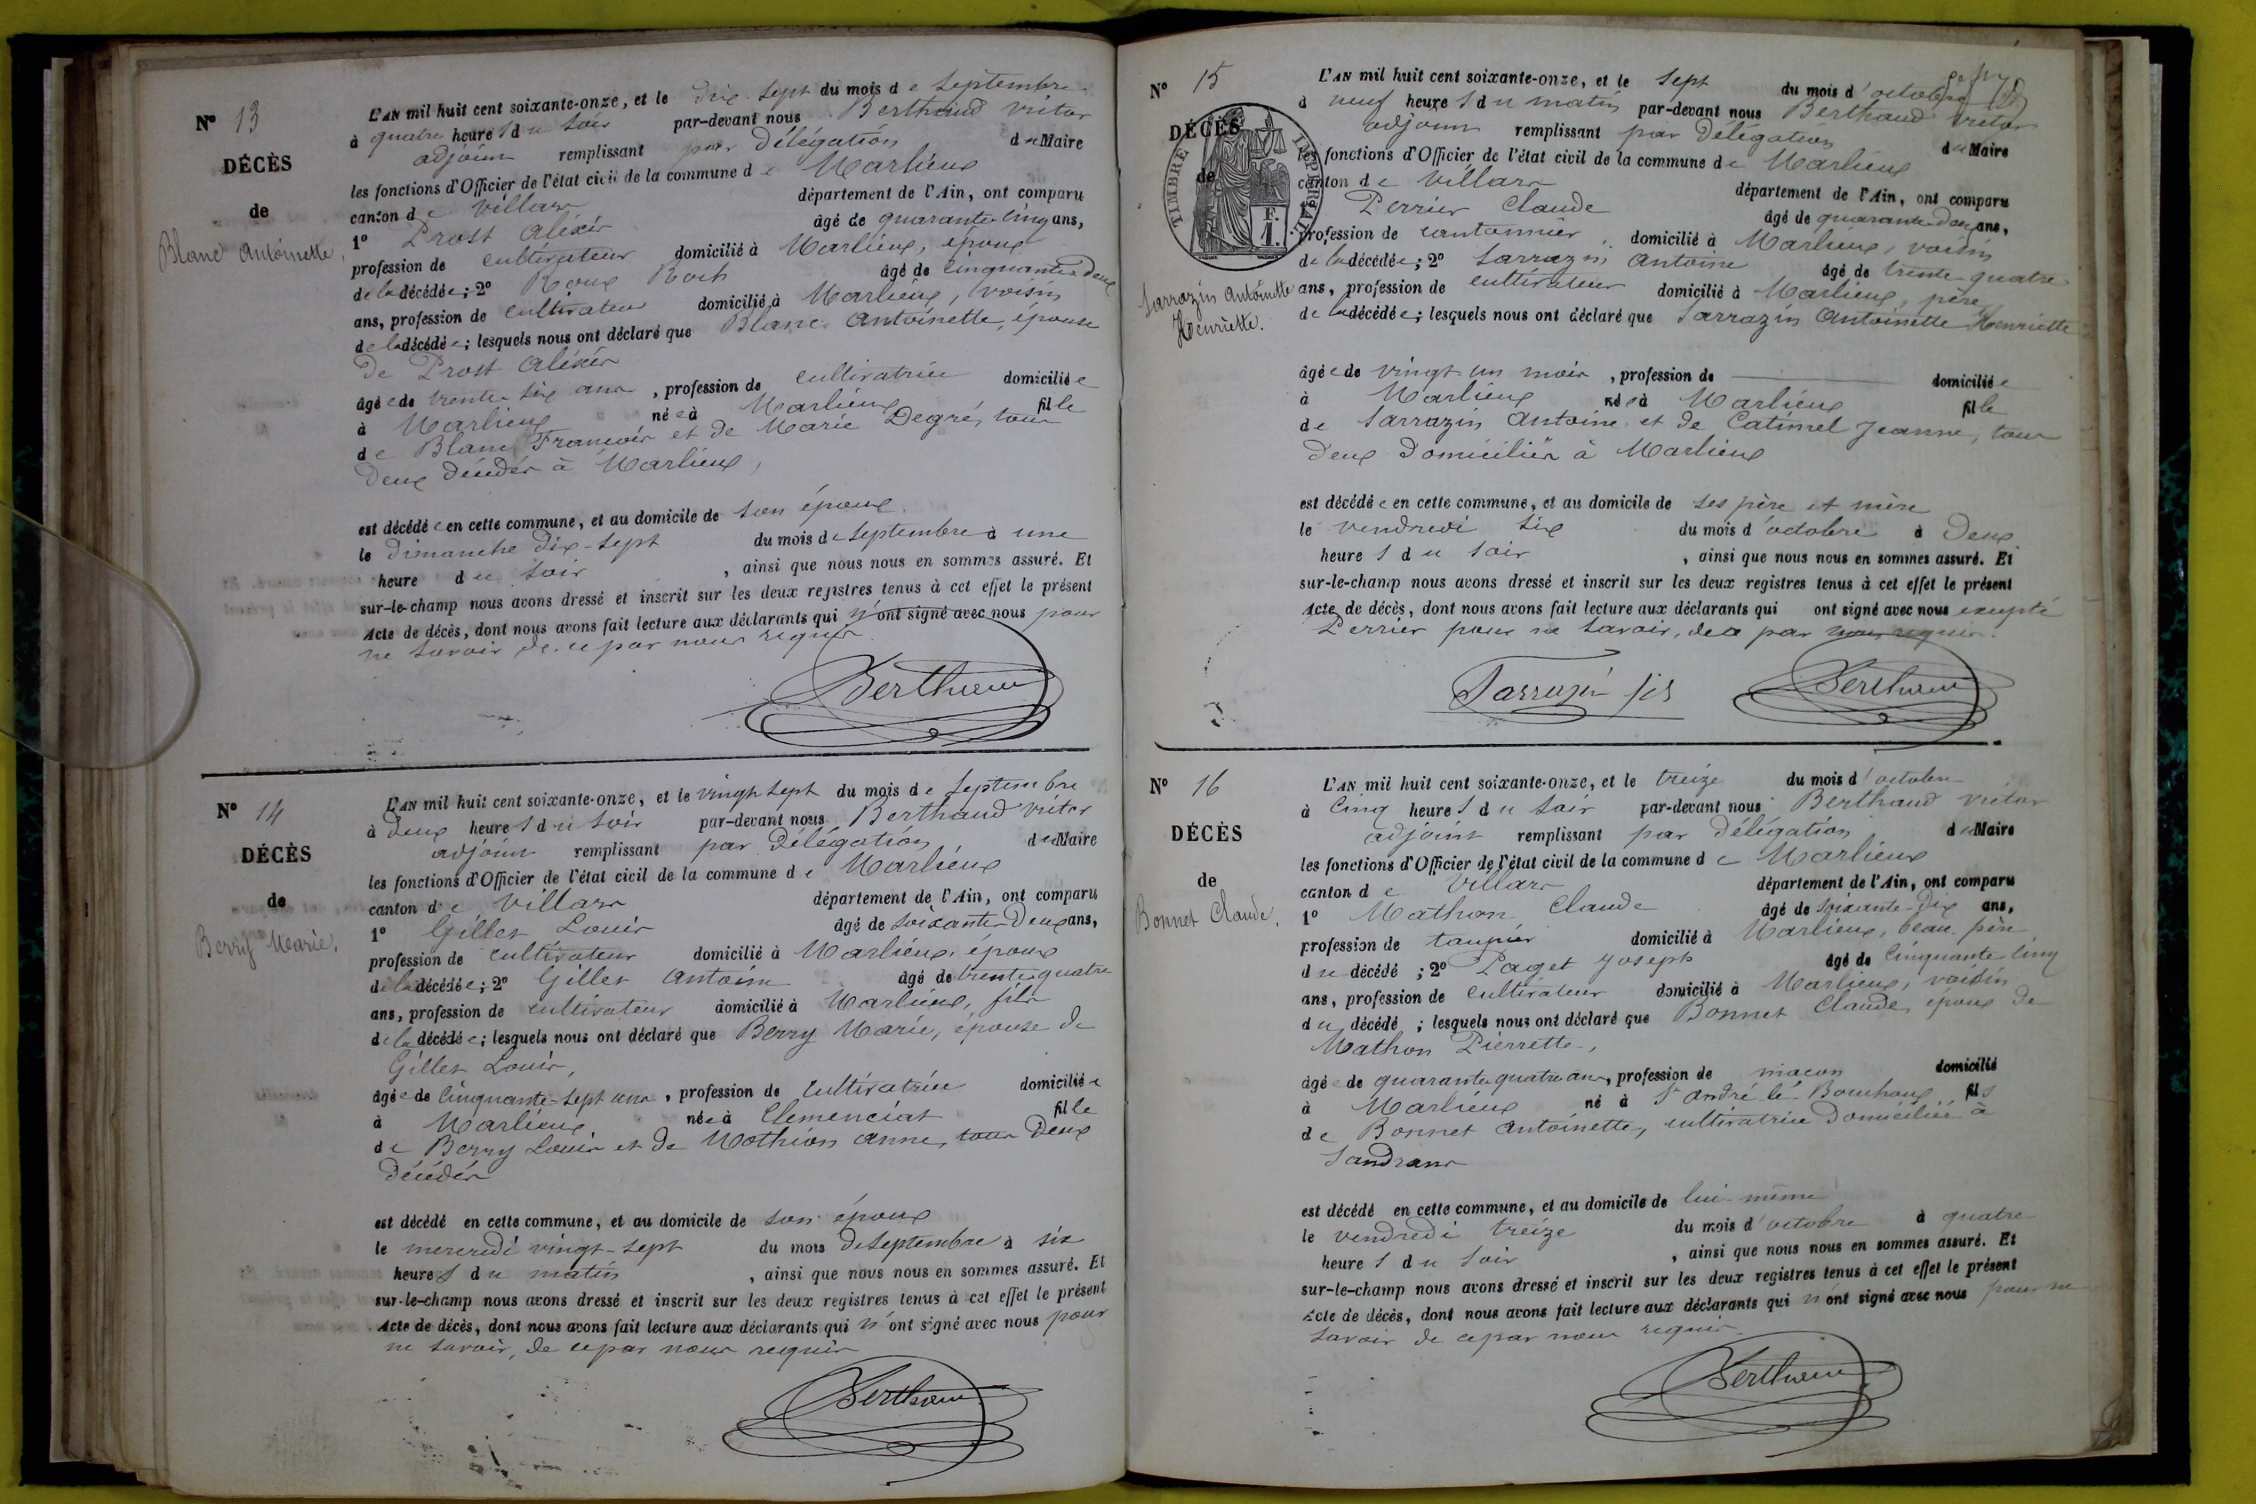 N° 13
DÉCÈS
de
Blanc Antoinette.
L'AN mil huit cent soixante-onze, et le dix-sept du mois de septembre
à quatre heures du soir par-devant nous Berthaud victor
adjoint remplissant par délégation du Maire
les fonctions d'Officier de l'état civil de la commune de Marlieux
canton de Villars département de l'Ain, ont comparu
1° Prost Alexis âgé de quarante-cinq ans,
profession de cultivateur domicilié à Marlieux, époux
de la décédée; 2° Roux Roch âgé de cinquante-deux
ans, profession de cultivateur domicilié à Marlieux, voisin
de la décédée; lesquels nous ont déclaré que Blanc Antoinette, épouse
de Prost Alexis
âgée de trente-six ans, profession de cultivatrice domiciliée
à Marlieux née à Marlieux fille
de Blanc François et de Marie Degré, tous
deux décédés à Marlieux,
est décédée en cette commune, et au domicile de son époux
le dimanche dix-sept du mois de septembre à une
heure du soir, ainsi que nous nous en sommes assuré. Et
sur-le-champ nous avons dressé et inscrit sur les deux registres tenus à cet effet le présent
Acte de décès, dont nous avons fait lecture aux déclarants qui n'ont signé avec nous pour
ne savoir de ce par nous requis
Berthaud
N° 14
DÉCÈS
de
Berry Marie.
L'AN mil huit cent soixante-onze, et le vingt sept du mois de septembre
à deux heures du soir par-devant nous Berthaud victor
adjoint remplissant par délégation du Maire
les fonctions d'Officier de l'état civil de la commune de Marlieux
canton de Villars département de l'Ain, ont comparu
1° Gillet Louis âgé de soixante-deux ans,
profession de cultivateur domicilié à Marlieux, époux
de la décédée; 2° Gillet Antoine âgé de trente-quatre
ans, profession de cultivateur domicilié à Marlieux, fils
de la décédée; lesquels nous ont déclaré que Berry Marie, épouse de
Gillet Louis,
âgée de cinquante-sept ans, profession de cultivatrice domiciliée
à Marlieux, née à Clemenciat fille
de Berry Louis et de Mothion Anne, tous deux
décédés
est décédé en cette commune, et au domicile de son époux
le mercredi vingt-sept du mois de septembre à six
heures du matin, ainsi que nous nous en sommes assuré. Et
sur-le-champ nous avons dressé et inscrit sur les deux registres tenus à cet effet le présent
Acte de décès, dont nous avons fait lecture aux déclarants qui n'ont signé avec nous pour
ne savoir, de ce par nous requis
Berthaud
N° 15
DÉCÈS
de
TIMBRE IMPÉRIAL
F.
1.
Sarrazin Antoinette
Henriette.
L'AN mil huit cent soixante-onze, et le sept du mois d'octobre
à neuf heures du matin par-devant nous Berthaud victor
adjoint remplissant par délégation du Maire
les fonctions d'Officier de l'état civil de la commune de Marlieux
canton de Villars département de l'Ain, ont comparu
Perrier Claude âgé de quarante-deux ans,
profession de cantonnier, domicilié à Marlieux, voisin
de la décédée; 2° Sarrazin Antoine âgé de trente-quatre
ans, profession de cultivateur domicilié à Marlieux, père
de la décédée; lesquels nous ont déclaré que Sarrazin Antoinette Henriette
âgée de vingt-un mois, profession de domiciliée
à Marlieux née à Marlieux fille
de Sarrazin Antoine et de Catimel Jeanne, tous
deux domiciliés à Marlieux
est décédée en cette commune, et au domicile de ses père et mère
le vendredi six du mois d'octobre à deux
heures du soir, ainsi que nous nous en sommes assuré. Et
sur-le-champ nous avons dressé et inscrit sur les deux registres tenus à cet effet le présent
Acte de décès, dont nous avons fait lecture aux déclarants qui ont signé avec nous excepté
Perrier pour ne savoir, de ce par nous requis.
Sarrazin fils Berthaud
N° 16
DÉCÈS
de
Bonnet Claude.
L'AN mil huit cent soixante-onze, et le treize du mois d'octobre
à cinq heures du soir par-devant nous Berthaud victor
adjoint remplissant par délégation du Maire
les fonctions d'Officier de l'état civil de la commune de Marlieux
canton de Villars département de l'Ain, ont comparu
1° Mathon Claude âgé de soixante-dix ans,
profession de taupier domicilié à Marlieux, beau-père
du décédé; 2° Paget Joseph âgé de cinquante-cinq
ans, profession de cultivateur domicilié à Marlieux, voisin
du décédé; lesquels nous ont déclaré que Bonnet Claude, époux de
Mathon Pierrette,
âgé de quarante-quatre ans, profession de maçon domicilié
à Marlieux né à St André le Bouchoux fils
de Bonnet Antoinette, cultivatrice domiciliée à
Sandrans
est décédé en cette commune, et au domicile de lui-même
le vendredi treize du mois d'octobre à quatre
heures du soir, ainsi que nous nous en sommes assuré. Et
sur-le-champ nous avons dressé et inscrit sur les deux registres tenus à cet effet le présent
Acte de décès, dont nous avons fait lecture aux déclarants qui n'ont signé avec nous pour ne
savoir de ce par nous requis.
Berthaud